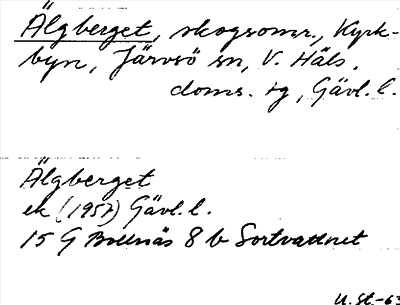 Älgberget, skogsomr., Kyrk-
byn, Järvsö sn, V. Häls.
doms. tg, Gävl. l.
Älgberget
ek (1957) Gävl. l.
15 G Bollnäs 8 b Sortvattnet
U. St.-63